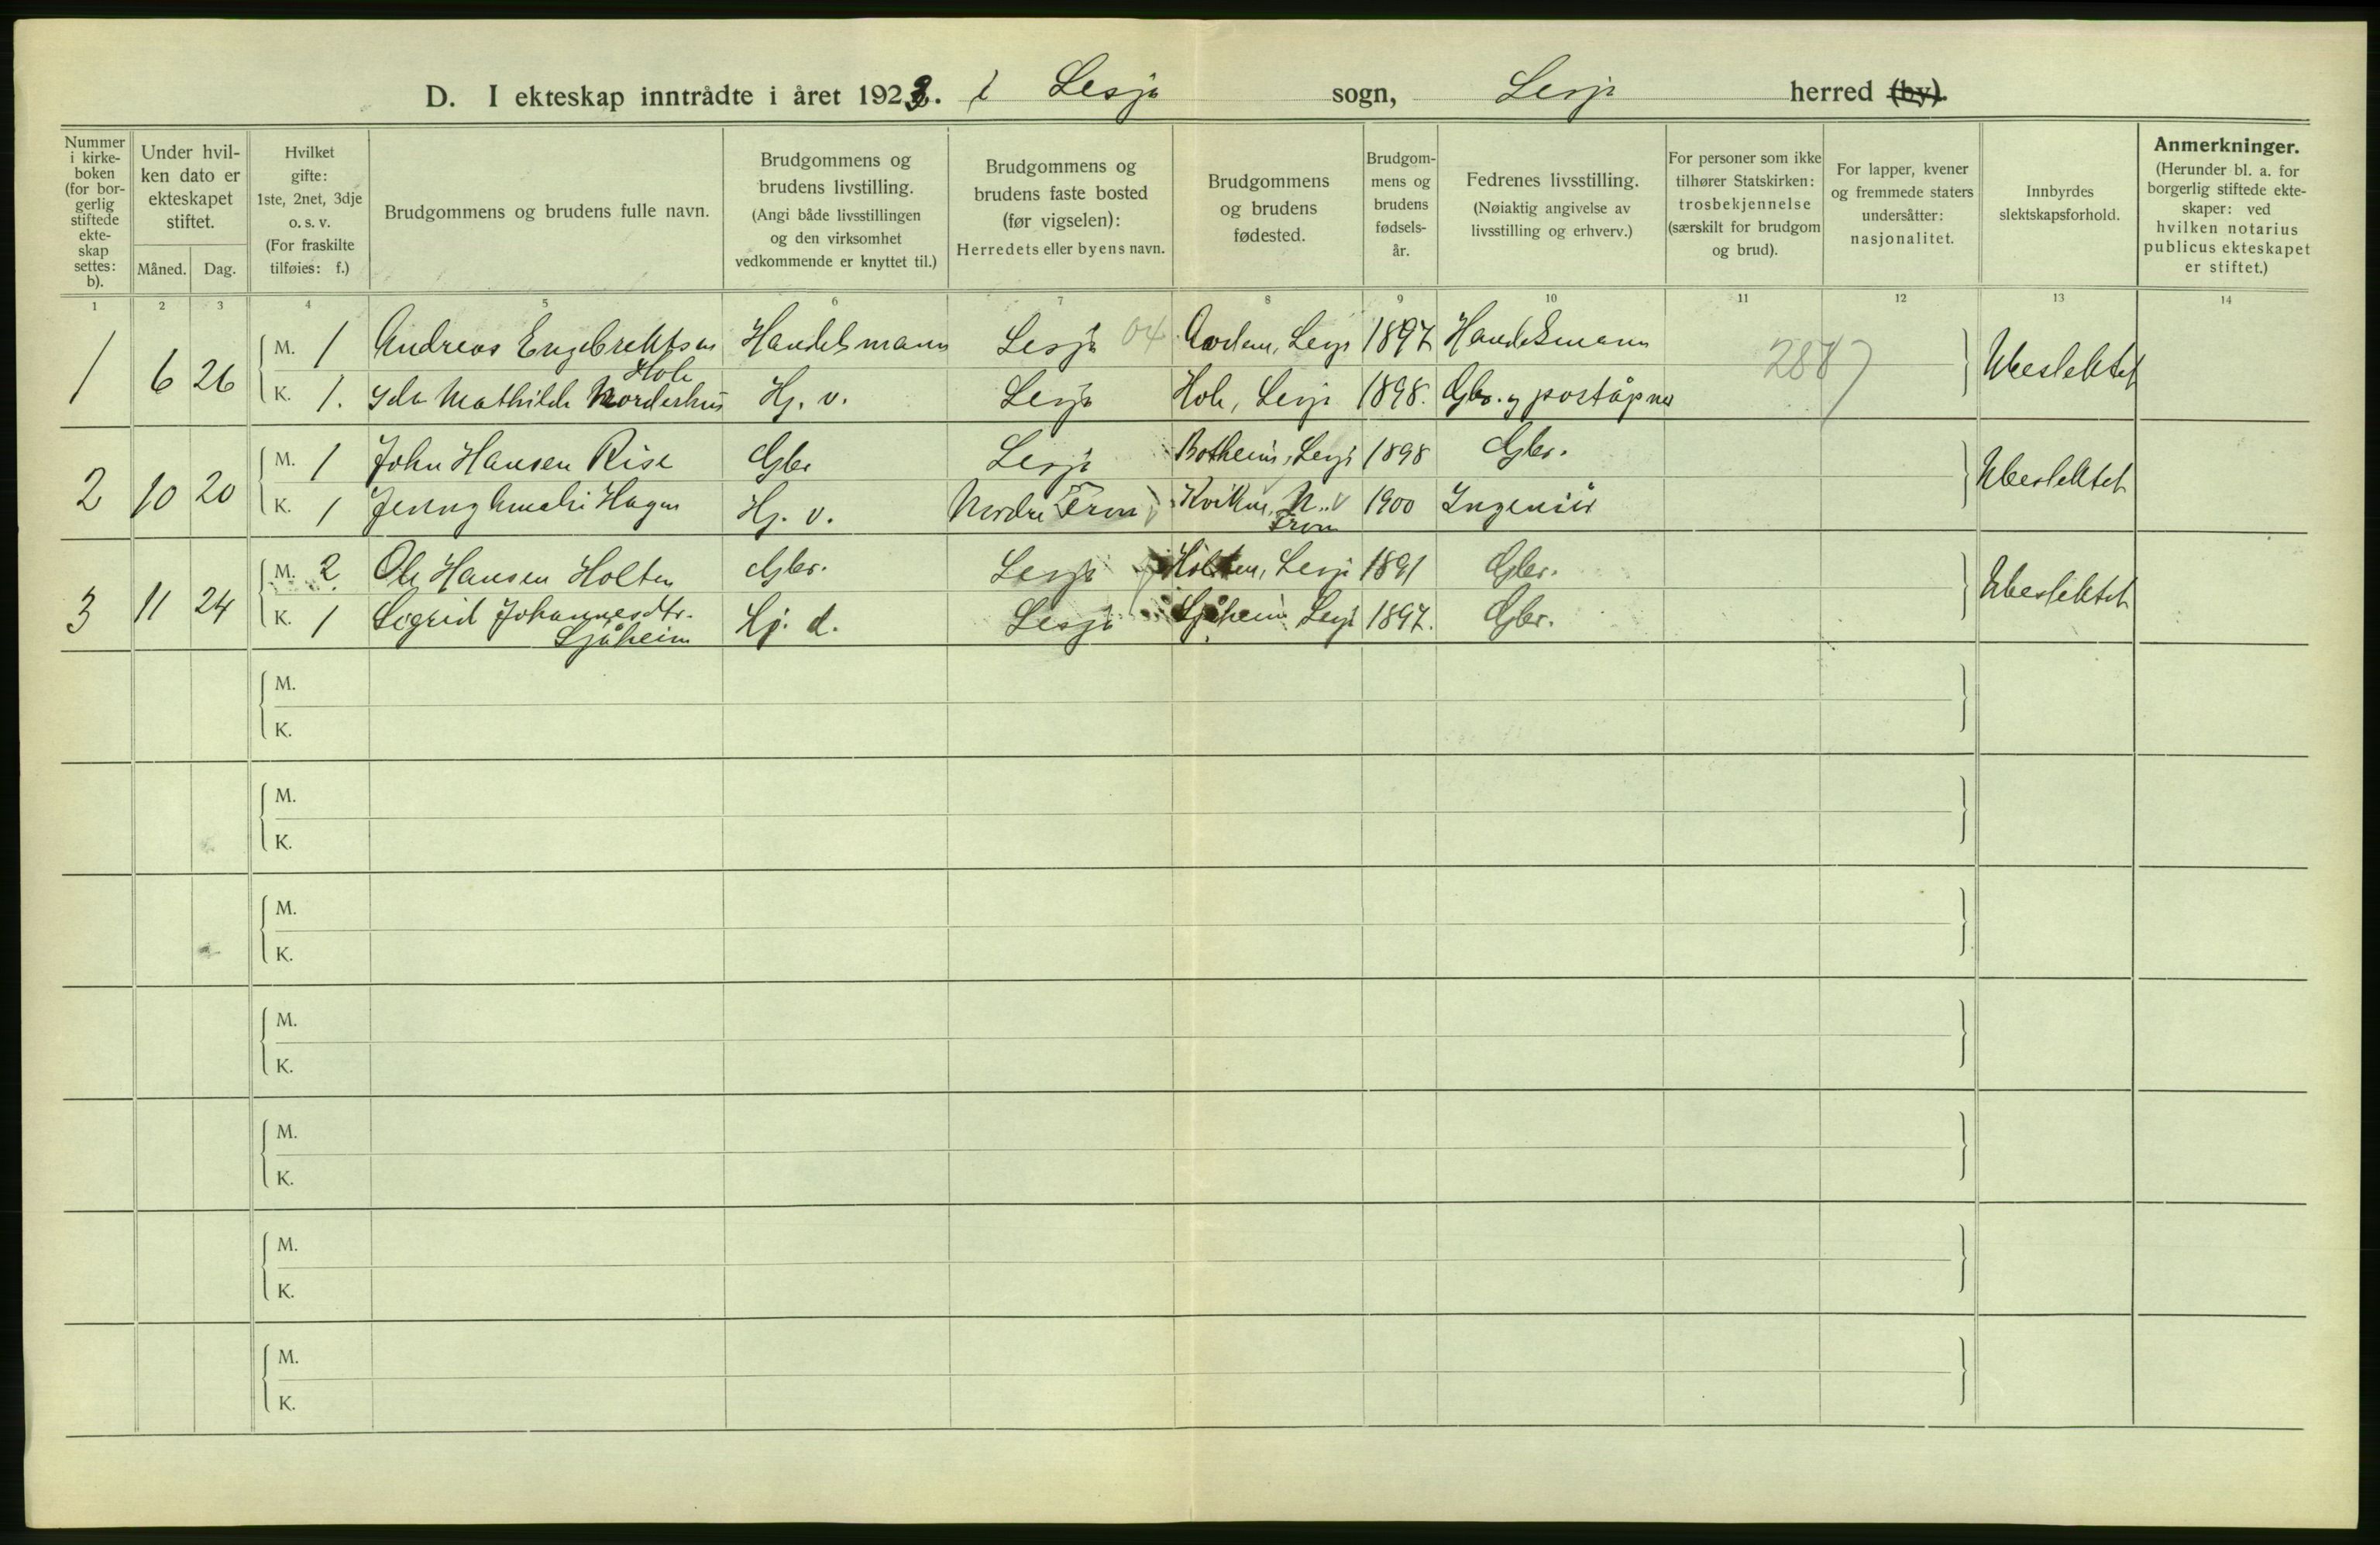 D. I ekteskap inntrådte i året 1923. i Lesja sogn, Lesja herred (by).
Nummer i kirke-boken (for bor-gerlig stiftede ekte-skap settes: b).
Under hvil-ken dato er ekteskapet stiftet.
Måned. Dag.
Hvilket gifte: 1ste, 2net, 3dje o. s. v. (For fraskilte tilføies: f.)
Brudgommens og brudens fulle navn.
Brudgommens og brudens livstilling. (Angi både livsstillingen og den virksomhet vedkommende er knyttet til.)
Brudgommens og brudens faste bosted (før vigselen): Herredets eller byens navn.
Brudgommens og brudens fødested.
Brudgom-mens og brudens fødsels-år.
Fedrenes livsstilling. (Nøiaktig angivelse av livsstilling og erhverv.)
For personer som ikke tilhører Statskirken: trosbekjennelse (særskilt for brudgom og brud).
For lapper, kvener og fremmede staters undersåtter: nasjonalitet.
Innbyrdes slektskapsforhold.
Anmerkninger. (Herunder bl. a. for borgerlig stiftede ekte-skaper: ved hvilken notarius publicus ekteskapet er stiftet.)
1 2 3 4 5 6 7 8 9 10 11 12 13 14
1 6 26 M. 1 Andreas Engebrektsen Hole Handelsmann Lesja 04 Lesja 1897 Handelsmann 2887 Ubeslektet
K. 1. Ida Mathilde Norderhus Hj. v. Lesja Hole, Lesja 1898. Gbr. og poståpner
2 10 20 M. 1 John Hansen Rise Gbr Lesja Botheim, Lesja 1898 Gbr. Ubeslektet
K. 1 Jenny Amalie Hagen Hj. v. Nordre Fron Kvikne, N. Fron 1900 Ingeniør
3 11 24 M. 2 Ole Hansen Holten Gbr. Lesja Holten, Lesja 1891 Gbr. Ubeslektet
K. 1 Sigrid Johannesdtr. Sjåheim Hj. d. Lesja Sjåheim Lesja 1897. Gbr.
M.
K.
M.
K.
M.
K.
M.
K.
M.
K.
M.
K.
M.
K.